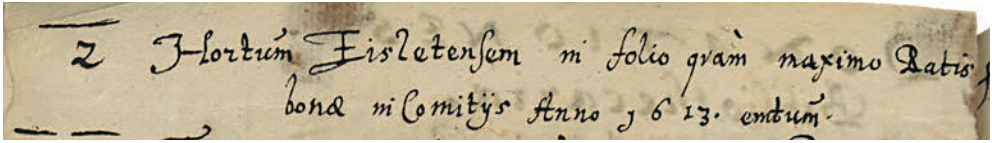 2 Hortum Eisletensem in folio quàm maximo Ratis
bonæ in Comitijs Anno 1613. emtum.